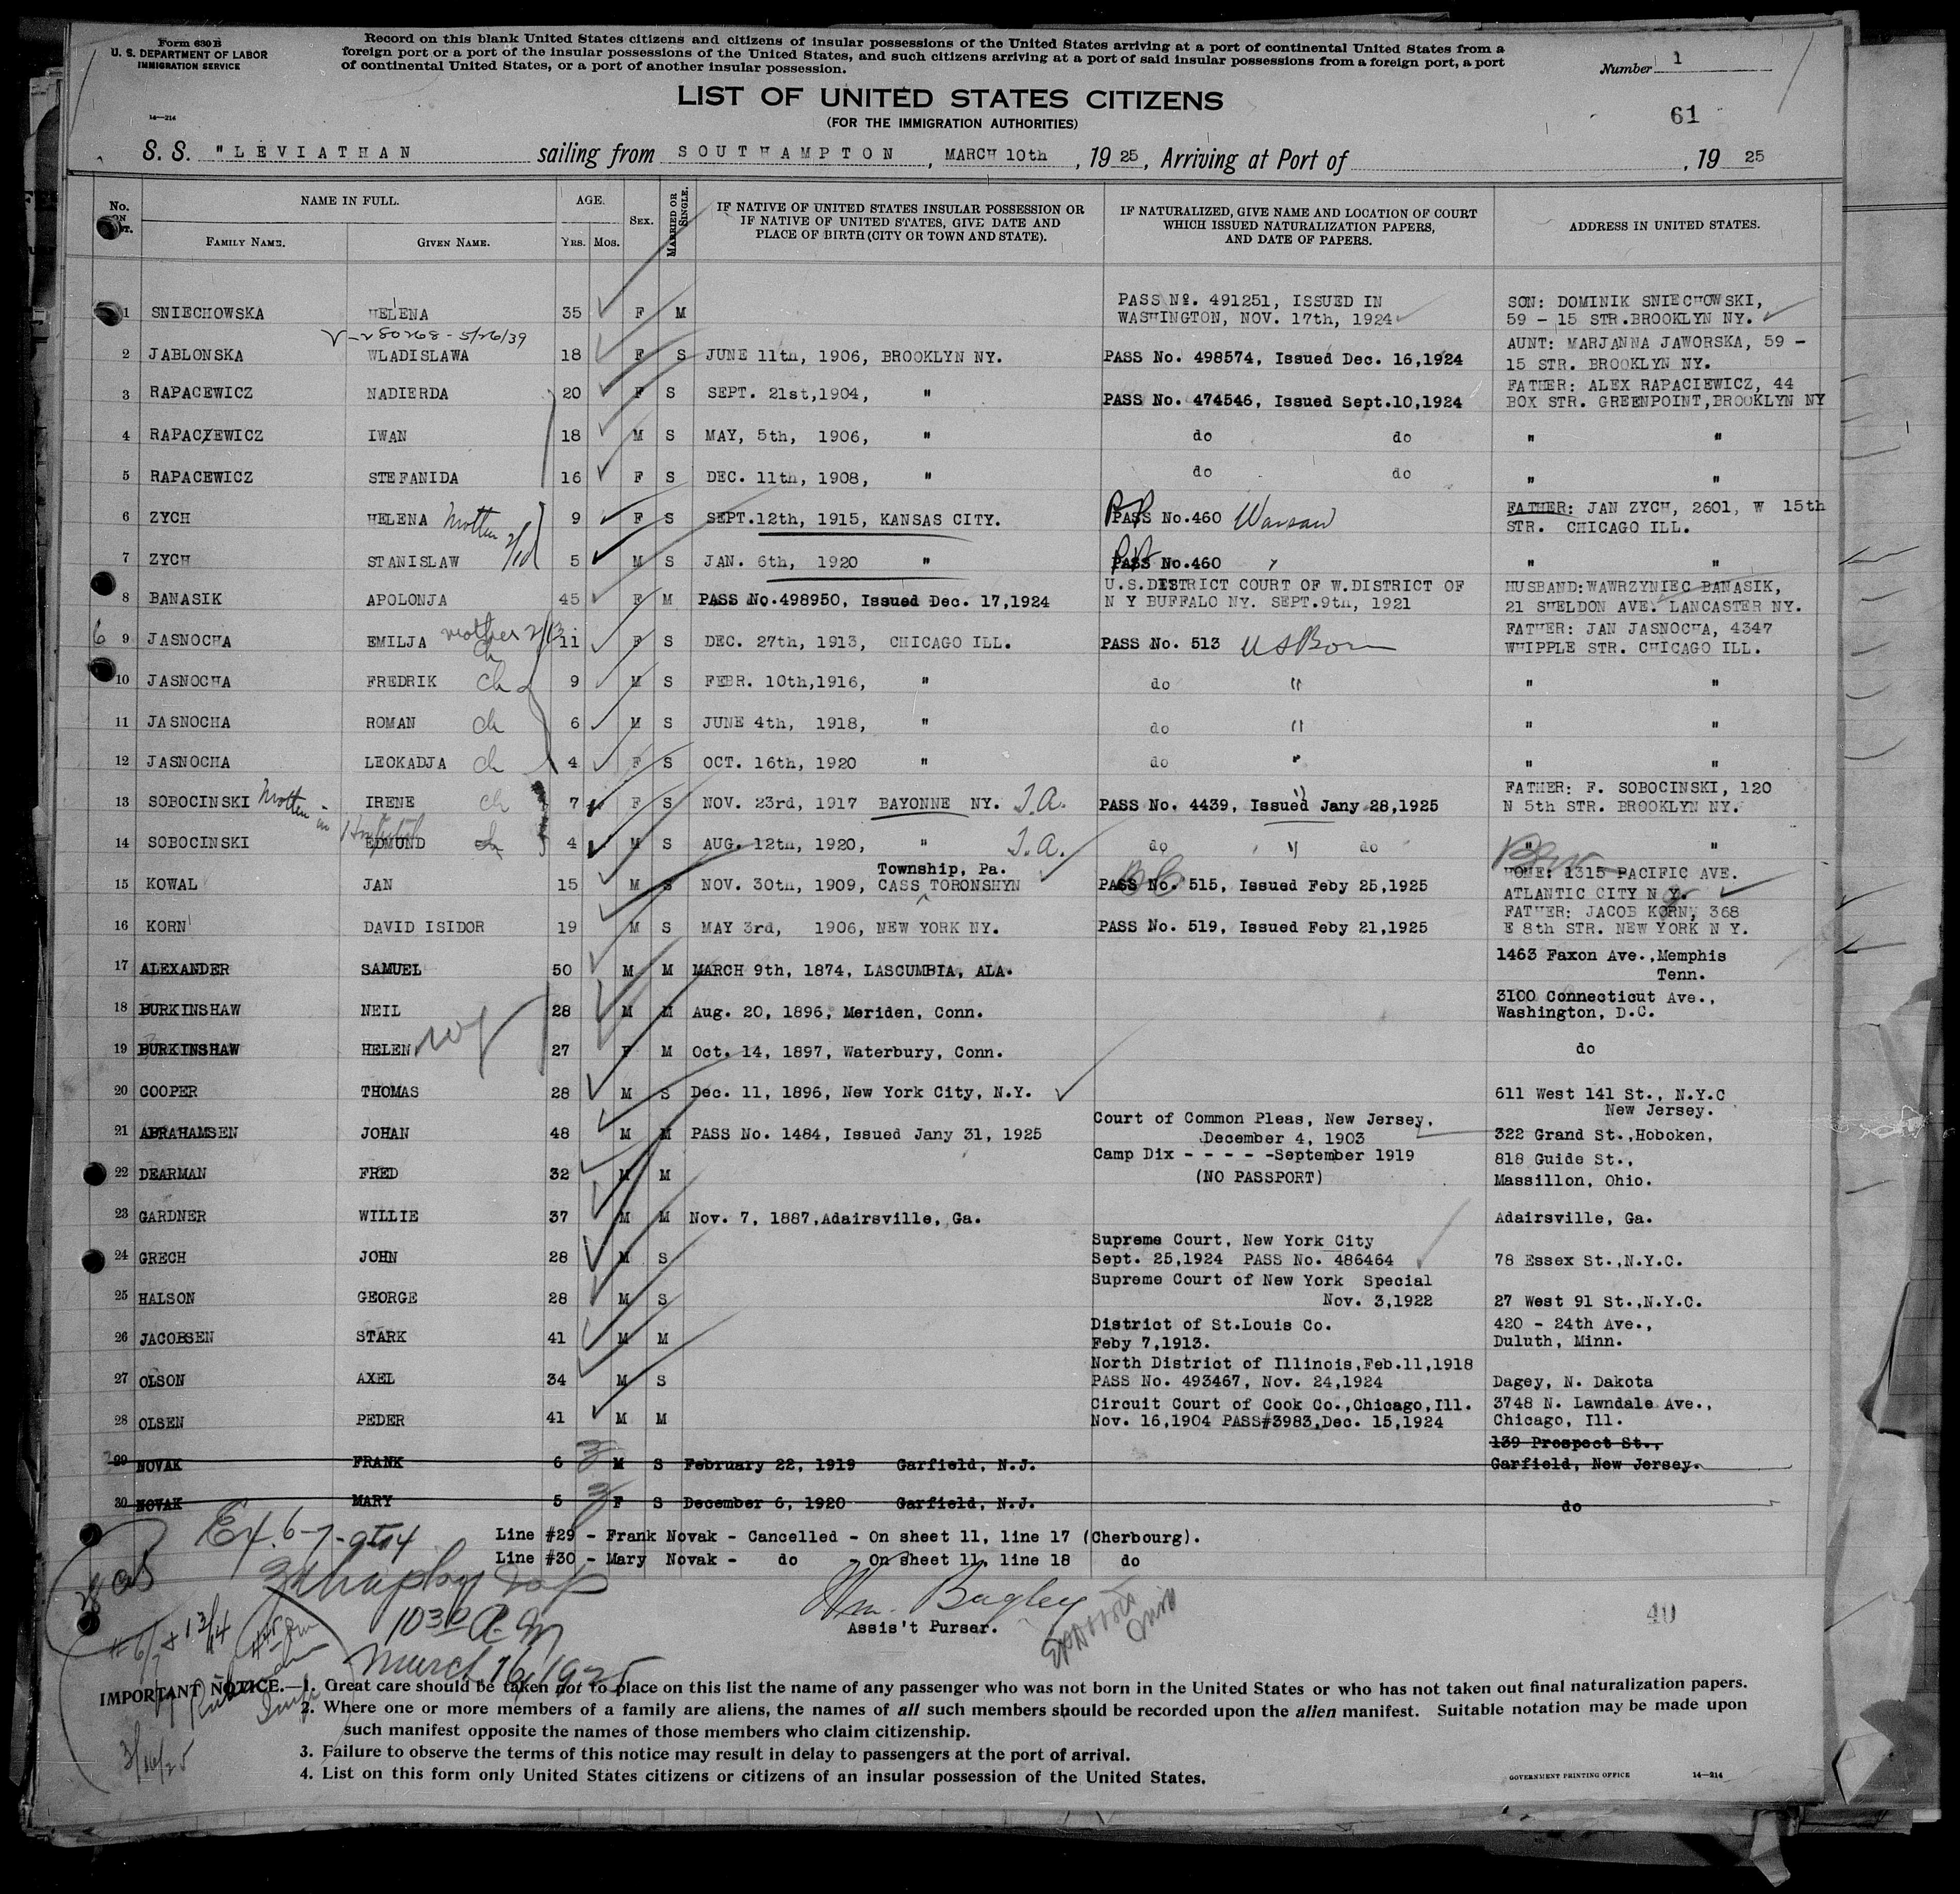 Form 630 B
U. S. DEPARTMENT OF LABOR
IMMIGRATION SERVICE
14—214
Record on this blank United States citizens and citizens of insular possessions of the United States arriving at a port of continental United States from a
foreign port or a port of the insular possessions of the United States, and such citizens arriving at a port of said insular possessions from a foreign port, a port
of continental United States, or a port of another insular possession.
Number 1
LIST OF UNITED STATES CITIZENS
(FOR THE IMMIGRATION AUTHORITIES)
61
S. S. "LEVIATHAN sailing from SOUTHAMPTON, MARCH 10th, 1925, Arriving at Port of , 1925
No. ON
NAME IN FULL.
FAMILY NAME. GIVEN NAME.
AGE.
YRS. MOS.
SEX.
MARRIED OR SINGLE.
IF NATIVE OF UNITED STATES INSULAR POSSESSION OR
IF NATIVE OF UNITED STATES, GIVE DATE AND
PLACE OF BIRTH (CITY OR TOWN AND STATE).
IF NATURALIZED, GIVE NAME AND LOCATION OF COURT
WHICH ISSUED NATURALIZATION PAPERS,
AND DATE OF PAPERS.
ADDRESS IN UNITED STATES.
PASS Nº. 491251, ISSUED IN SON: DOMINIK SNIECHOWSKI,
1 SNIECHOWSKA HELENA 35 F M WASHINGTON, NOV. 17th, 1924 59 - 15 STR.BROOKLYN NY.
V-280268-5/26/39
AUNT: MARJANNA JAWORSKA, 59 -
2 JABLONSKA WLADISLAWA 18 F S JUNE 11th, 1906, BROOKLYN NY. PASS No. 498574, Issued Dec. 16,1924 15 STR. BROOKLYN NY.
FATHER: ALEX RAPACIEWICZ, 44
3 RAPACEWICZ NADIERDA 20 F S SEPT. 21st,1904, " PASS No. 474546, Issued Sept.10,1924 BOX STR. GREENPOINT,BROOKLYN NY
4 RAPACZEWICZ IWAN 18 M S MAY, 5th, 1906, " do do " "
5 RAPACEWICZ STEFANIDA 16 F S DEC. 11th, 1908, " do do " "
FATHER: JAN ZYCH, 2601, W 15th
6 ZYCH HELENA Mother 9 F S SEPT.12th, 1915, KANSAS CITY. PASS No.460 Warsaw STR. CHICAGO ILL.
7 ZYCH STANISLAW 5 M S JAN. 6th, 1920 " PASS No.460 " " "
U.S.DISTRICT COURT OF W.DISTRICT OF HUSBAND:WAWRZYNIEC BANASIK,
8 BANASIK APOLONJA 45 F M PASS No.498950, Issued Dec. 17,1924 N Y BUFFALO NY. SEPT.9th, 1921 21 SHELDON AVE. LANCASTER NY.
FATHER: JAN JASNOCHA, 4347
6 9 JASNOCHA EMILJA mother 2/13 ch 11 F S DEC. 27th, 1913, CHICAGO ILL. PASS No. 513 US Born WHIPPLE STR. CHICAGO ILL.
10 JASNOCHA FREDRIK ch 9 M S FEBR. 10th,1916, " do " " "
11 JASNOCHA ROMAN ch 6 M S JUNE 4th, 1918, " do " " "
12 JASNOCHA LEOKADJA ch 4 F S OCT. 16th, 1920 " do " " "
FATHER: F. SOBOCINSKI, 120
13 SOBOCINSKI Mother in Hospital IRENE ch 7 F S NOV. 23rd, 1917 BAYONNE NY. J.A. PASS No. 4439, Issued Jany 28,1925 N 5th STR. BROOKLYN NY.
14 SOBOCINSKI EDMUND ch 4 M S AUG. 12th, 1920, " J.A. do " do " "
Township, Pa. HOME: 1315 PACIFIC AVE.
15 KOWAL JAN 15 M S NOV. 30th, 1909, CASS TORONSHYN PASS No. 515, Issued Feby 25,1925 ATLANTIC CITY N Y.
FATHER: JACOB KORN, 368
16 KORN DAVID ISIDOR 19 M S MAY 3rd, 1906, NEW YORK NY. PASS No. 519, Issued Feby 21,1925 E 8th STR. NEW YORK N Y.
1463 Faxon Ave.,Memphis
17 ALEXANDER SAMUEL 50 M M MARCH 9th, 1874, LASCUMBIA, ALA. Tenn.
3100 Connecticut Ave.,
18 BURKINSHAW NEIL 28 M M Aug. 20, 1896, Meriden, Conn. Washington, D.C.
19 BURKINSHAW HELEN 27 F M Oct. 14, 1897, Waterbury, Conn. do
20 COOPER THOMAS 28 M S Dec. 11, 1896, New York City, N.Y. 611 West 141 St., N.Y.C
Court of Common Pleas, New Jersey, New Jersey.
21 ABRAHAMSEN JOHAN 48 M M PASS No. 1484, Issued Jany 31, 1925 December 4, 1903 322 Grand St.,Hoboken,
Camp Dix - - - - -September 1919 818 Guide St.,
22 DEARMAN FRED 32 M M (NO PASSPORT) Massillon, Ohio.
23 GARDNER WILLIE 37 M M Nov. 7, 1887,Adairsville, Ga. Adairsville, Ga.
Supreme Court, New York City
24 GRECH JOHN 28 M S Sept. 25,1924 PASS No. 486464 78 Essex St.,N.Y.C.
Supreme Court of New York Special
25 HALSON GEORGE 28 M S Nov. 3,1922 27 West 91 St.,N.Y.C.
District of St.Louis Co. 420 - 24th Ave.,
26 JACOBSEN STARK 41 M M Feby 7,1913. Duluth, Minn.
North District of Illinois,Feb.11,1918
27 OLSON AXEL 34 M S PASS No. 493467, Nov. 24,1924 Dagey, N. Dakota
Circuit Court of Cook Co.,Chicago,Ill. 3748 N. Lawndale Ave.,
28 OLSEN PEDER 41 M M Nov. 16,1904 PASS#3983,Dec. 15,1924 Chicago, Ill.
139 Prospect St.,
29 NOVAK FRANK 6 3 M S February 22, 1919 Garfield, N.J. Garfield, New Jersey.
30 NOVAK MARY 5 3 F S December 6, 1920 Garfield, N.J. do
Line #29 - Frank Novak - Cancelled - On sheet 11, line 17 (Cherbourg).
Line #30 - Mary Novak - do - On sheet 11, line 18 do
Wm. Bagley
Assis't Purser.
10 30 A.M
March 16, 1925
40
IMPORTANT NOTICE.—1. Great care should be taken not to place on this list the name of any passenger who was not born in the United States or who has not taken out final naturalization papers.
2. Where one or more members of a family are aliens, the names of all such members should be recorded upon the alien manifest. Suitable notation may be made upon
such manifest opposite the names of those members who claim citizenship.
3. Failure to observe the terms of this notice may result in delay to passengers at the port of arrival.
4. List on this form only United States citizens or citizens of an insular possession of the United States.
GOVERNMENT PRINTING OFFICE 14—214